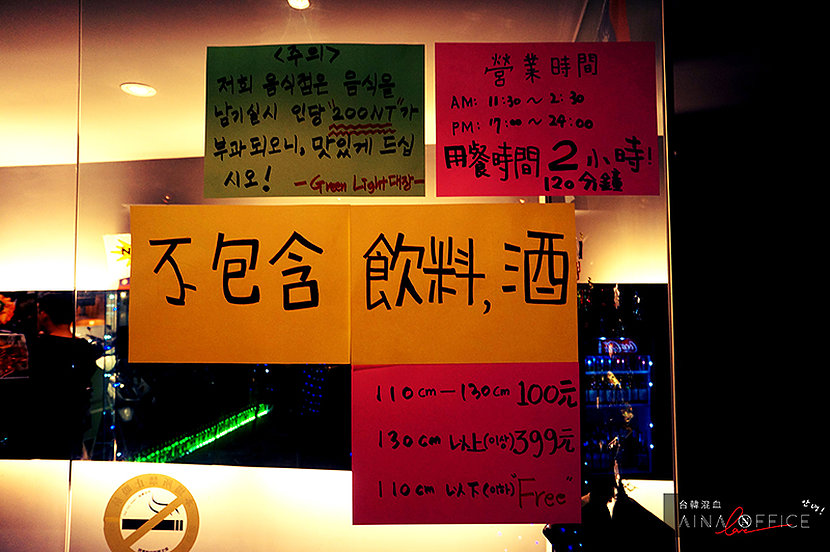 <주의>
저희 음식점은 음식을
남기실시 인당 "200NT"가
부과되오니, 맛있게 드십
시오! -Green Light대장-
營業時間
AM: 11:30~2:30
PM: 17:00~24:00
用餐時間2小時!
120分鐘
不包含 飲料,酒
110cm-130cm 100元
130cm 以上(이상)399元
110cm 以下(이하)"Free"
台韓混血
안녕!
AINA OFFICE